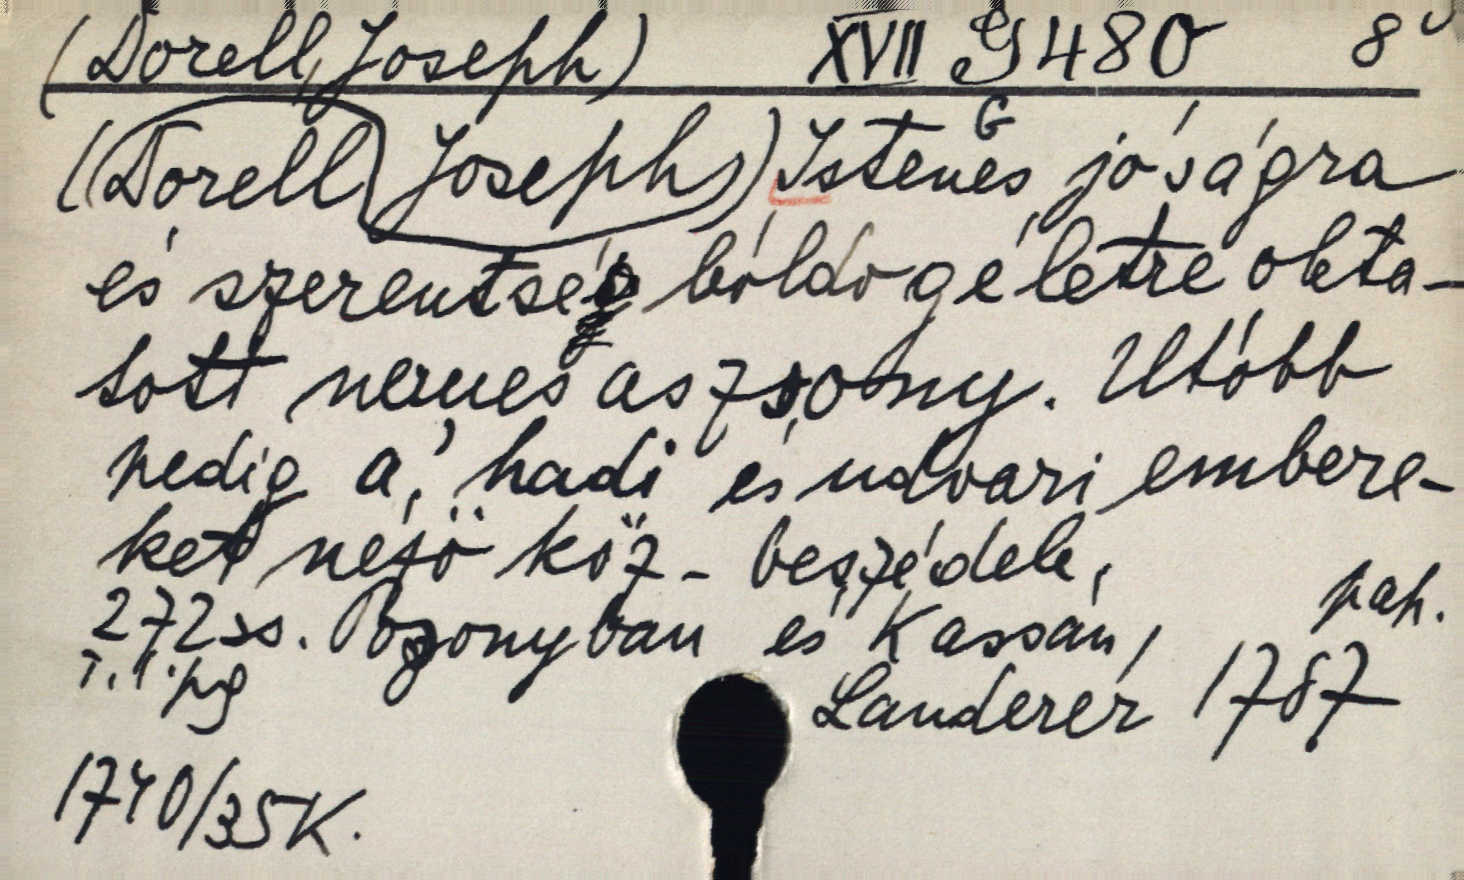 (Dorell, Joseph) XVII G 480 8°
G
(Dorell Joseph) Istenes jóságra
és szerentsés bóldog életre okta-
tott nemes aszszony. Utóbb
pedig a' hadi és udvari embere-
ket néző köz-beszédek,
pap.
272 ss. Pozonyban és Kassán,
T. 1. pg Landerer 1787
1740/35K.